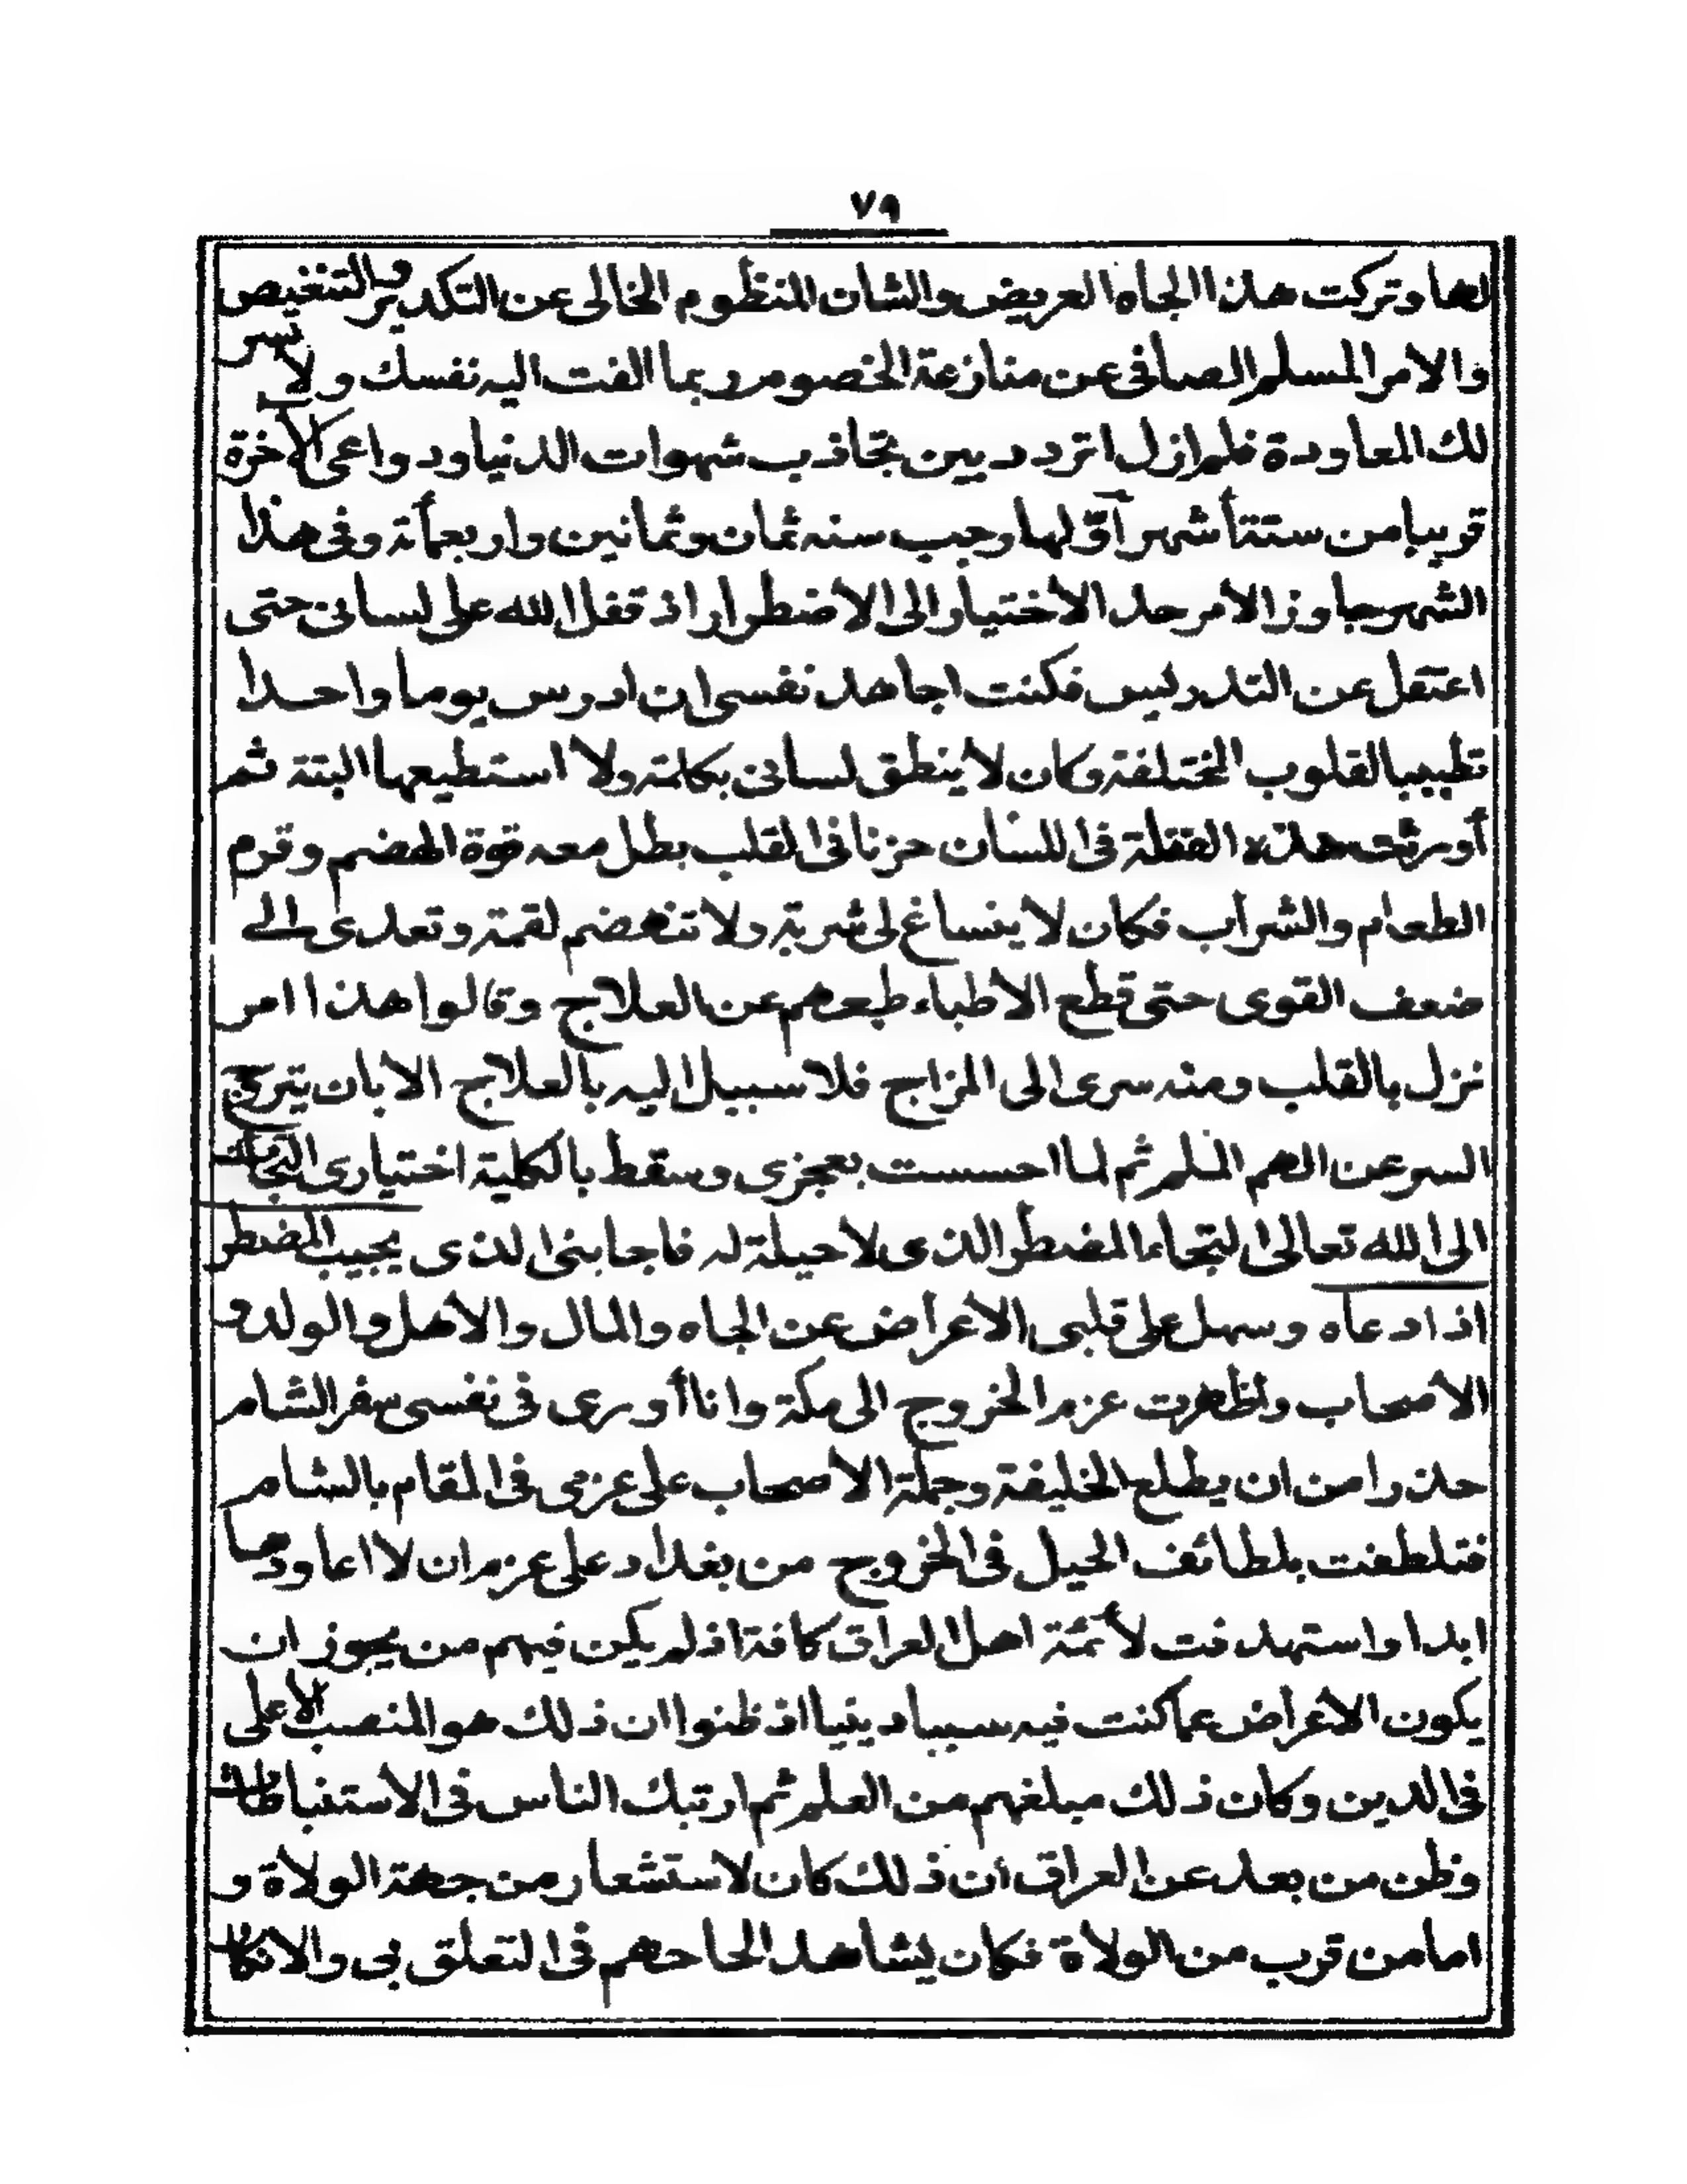 ٧٩
لها وتركت هذا الجاه العريض والشان المنظوم الخالى عن التكدير والتنغيص
والامر المسلم الصافى عن منازعة الخصوم ربما الفت اليه نفسك ولا تيسر
لك المعاودة فلم ازل اتردد بين تجاذب شهوات الدنيا ودواعى الأخرة
قريبا من ستة أشهر أوّلها رجب سنه ثمان وثمانين واربعمأئة وفى هذا
الشهر جاوز الامر حد الاختيار الى الاضطرار اذ قفل الله على لسانى حتى
اعتقل عن التدريس فكنت اجاهد نفسى ان ادرس يوما واحدا
تطييبا لقلوب المختلفة وكان لا ينطق لسانى بكلمة ولا استطيعها البتة ثم
أورثت هذه القفلة فى اللسان حزنا فى القلب بطل معه قوة الهضم وقرم
الطعام والشراب فكان لا ينساغ لى شربة ولا تنهضم لقمة وتعدى الى
ضعف القوى حتى قطع الاطباء طبعهم عن العلاج وقالوا هذا امر
نزل بالقلب ومنه سرى الى المزاج فلا سبيل اليه بالعلاج الا بان يتروح
السر عن الهم الملم ثم لما احسست بعجزى وسقط بالكلية اختيارى التجأت
الى الله تعالى التجاء المضطر الذى لا حيلة له فاجابنى الذى يجيب المضطر
اذا دعاه وسهل على قلبى الاعراض عن الجاه والمال والاهل والولد و
الاصحاب واظهرت عزم الخروج الى مكة وانا أورى فى نفسى سفر الشام
حذرا من ان يطلع الخليفة وجملة الاصحاب على عزمى فى المقام بالشام
فتلطفت بلطائف الحيل فى الخروج من بغداد على عزم ان لا اعاودها
ابدا واستهدفت لأئمة اهل العراق كافة اذ لم يكن فيهم من يجوز ان
يكون الاعراض عما كنت فيه سببا دينيا اذ ظنوا ان ذلك هو المنصب الاعلى
فى الدين وكان ذلك مبلغهم من العلم ثم ارتبك الناس فى الاستنباطات
وظن من بعد عن العراق أن ذلك كان لاستشعار من جهة الولاة و
اما من قرب من الولاة فكان يشاهد الحاحهم فى التعلق بى والانكباب